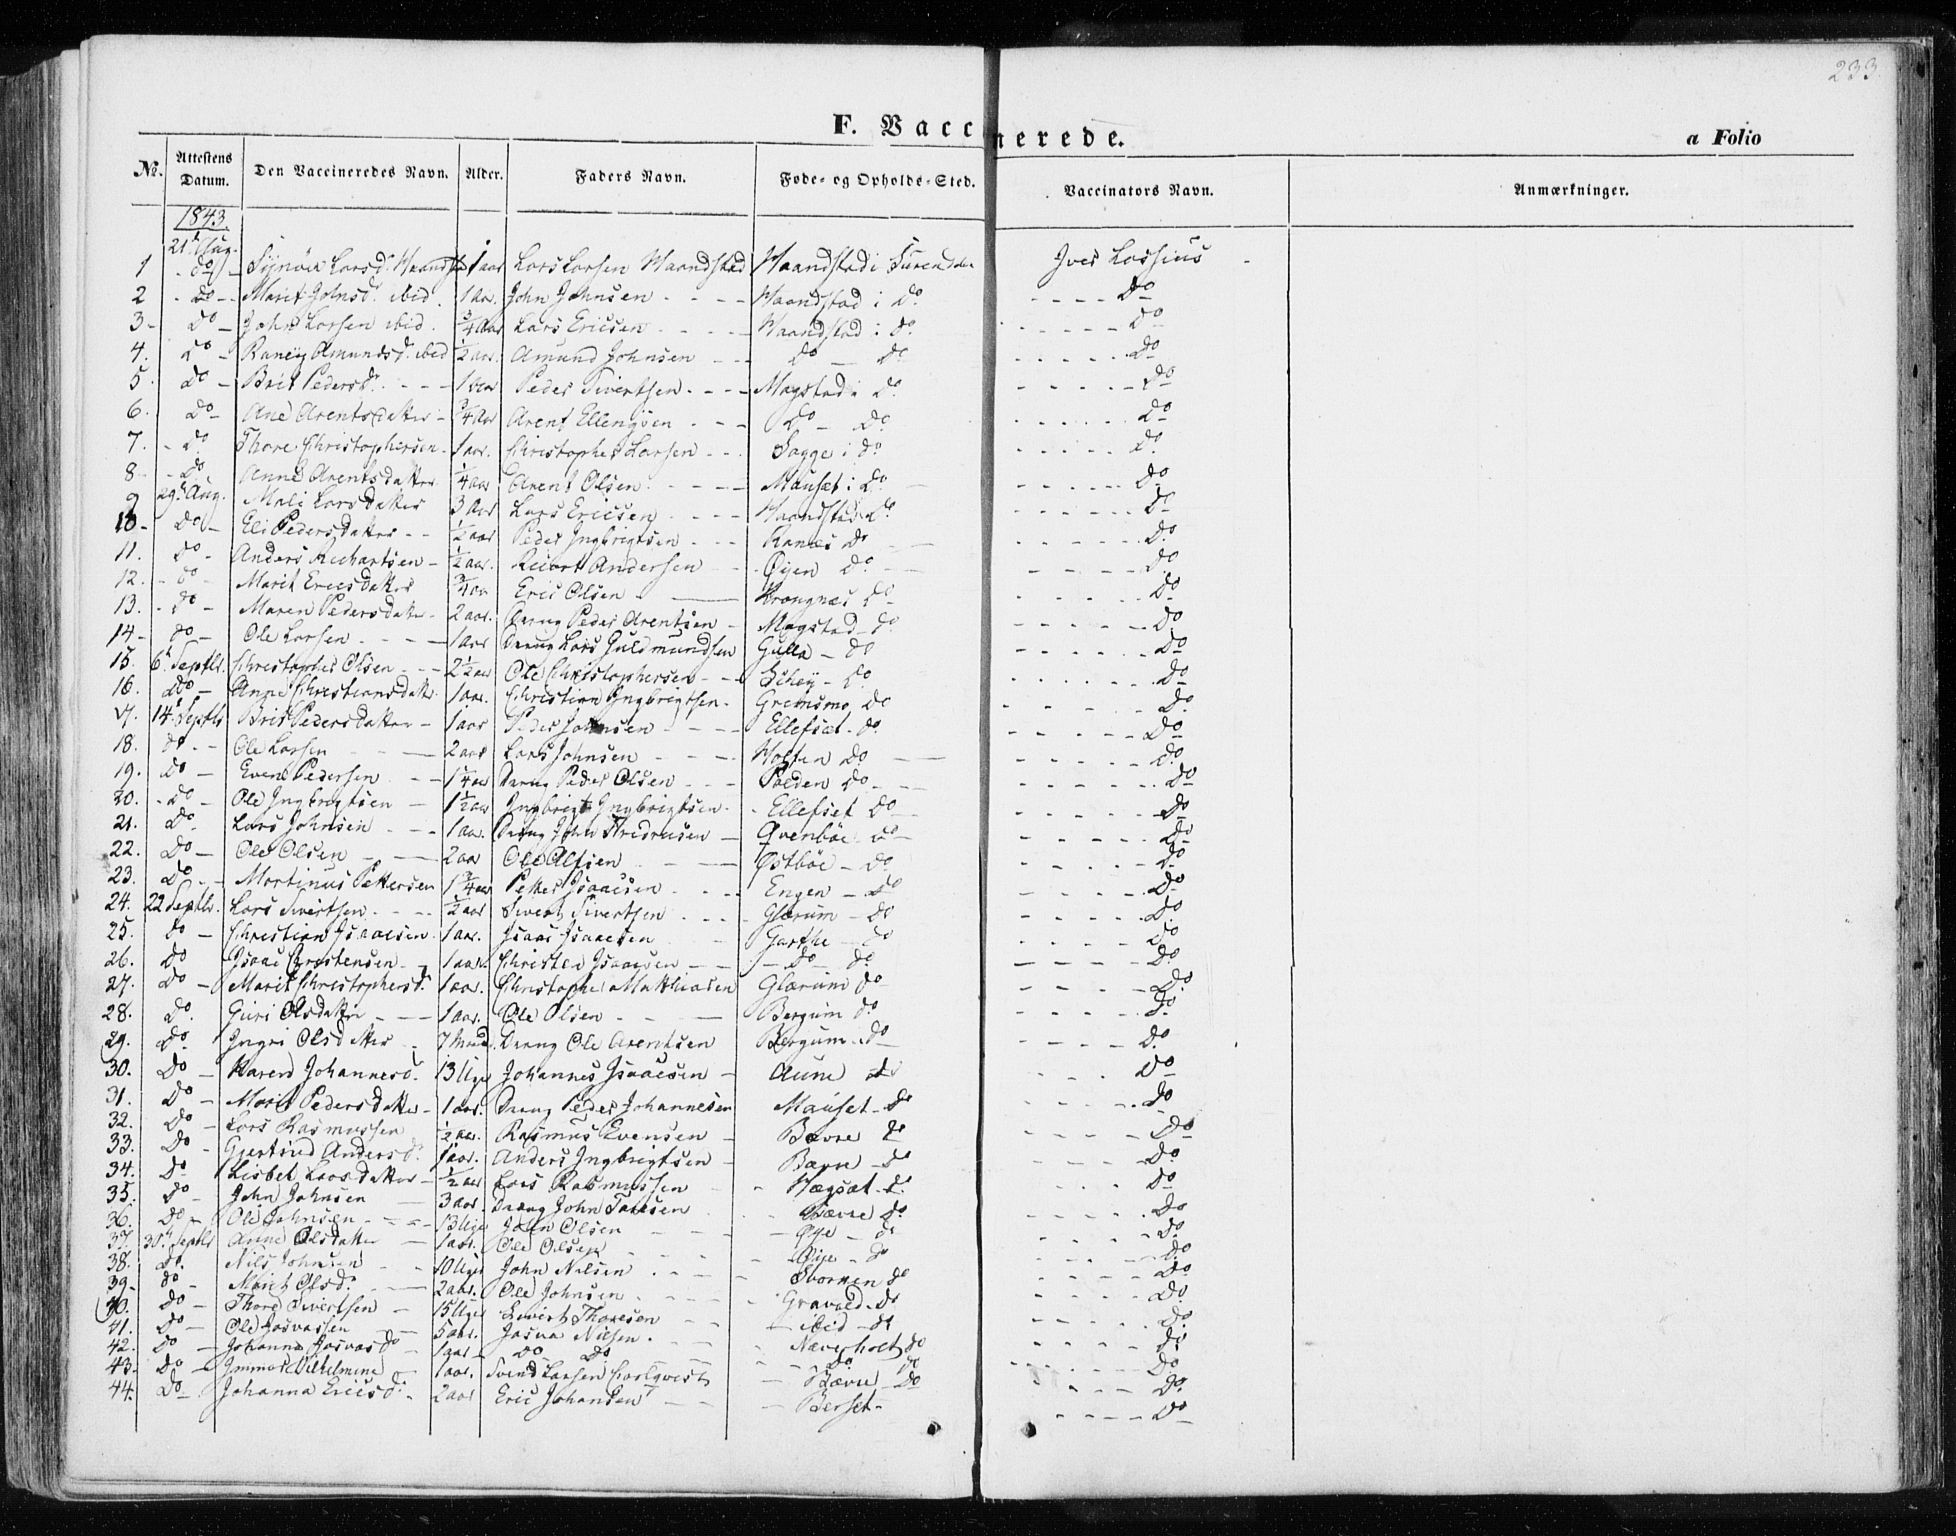 233.
F. Vaccinerede.
a Folio
No. Attestens Datum. Den Vaccineredes Navn. Alder. Faders Navn. Føde- og Opholds-Sted. Vaccinators Navn. Anmærkninger.
1843.
21d Aug.
1 do Larsd. 1 aar Lars Larsen Haandstad Haandstad i Surendalen Iver Lossius
2 Do Marit Johnsd. ibid. 1 Aar. John Johnsen Haandstad i Do Do
3 Do John Larsen ibid. 3/4 Aar Lars Ericsen Haandstad i Do Do
4. Do Amundsd. ibid 1/2 aar. Amund Johnsen Do Do Do
5. Do Brit Pedersd. 1 aar Peder Sivertsen Magstad i Do Do
6. Do Ane Arentsdatter 3/4 Aar Arent Ellengsen Do Do Do
7. Do Thore Christophersen 1 aar. Christopher Larsen Sagge i do Do
8 Do Anne Arentsdatter 1/4 aar Arent Olsen Mauset i Do Do
9 29d Aug. Mali Larsdatter 3 Aar Lars Ericsen Haandstad Do Do
10 Do Eli Pedersdatter 1/2 aar Peder Ingbrigtsen Ranæs Do Do
11. Do Anders Richartsen 1/2 aar. Andersen Øyen Do Do
12. Do Marit Ericsdatter 3/4 aar Eric Olsen Krongnæs Do Do
13. Do Maren Pedersdatter 2 aar. Peder Arentsen Magstad do Do
14 do Ole Larsen 1 aar Lars Guldmundsen Gulla do Do
15. 6d Septbr. Christopher Olsen 2 1/2 aar Ole Christophersen Schey Do Do
16. do Anne Christiansdatter 1 aar. Christian Ingbrigtsen Gremsmo Do Do
17. 14d Septbr Brit Pedersdatter 1 aar Peder Johnsen Ellefsæt do Do
18. do Ole Larsen 2 aar Lars Johnsen Holten Do Do
19. do Even Pedersen 1 1/4 aar Peder Olsen Polden Do Do
20. Do Ole Ingbrigtsen 1 1/2 aar Ingbrigt Ingbrigtsen Ellefset Do Do
21. Do Lars Johnsen 1 aar. John Qvenbøe Do Do
22. Do Ole Olsen 2 aar Ole Østbøe Do Do
23. Do Martinus Pettersen 1 3/4 aar Petter Isaacsen Engen Do Do
24. 22 Septbr. Lars Sivertsen 1/2 aar Sivert Sivertsen Glærum Do Do
25. do Christian Isaacsen 1 aar. Isaac Isaacsen Garthe do Do
26. Do Isaac Christensen 1 aar. Christen Isaacsen Do do Do
27. Do Marit Christophersd. 1 aar. Christopher Matthiasen Glærum do Do
28. Do. Guri Olsdatter 1 aar. Ole Olsen Bergum do Do
29. Do Ingri Olsdatter 7 Ole Arentsen Bergum do Do
30. Do Karen Johannesd. 13 Uger Johannes Isaacsen Aune do Do
31. Do Marit Pedersdatter 1 aar. Peder Johannesen Mauset do Do
32. Do Lars Rasmussen 1/2 aar. Rasmus Evensen Bævre do Do
33. Do Gjertrud Andersd. 1 aar. Anders Ingbrigtsen Bævre do Do
34. Do Lisbet Larsdatter 1/2 aar Lars Rasmussen Hægsæt do Do
35. Do John Johnsen 3 aar. John Bævre do. Do
36. Do Ole Johnsen 13 Uger John Olsen Øye do Do
37. 30d Septbr Anne Olsdatter 1 aar. Ole Olsen Øye do Do
38. Do. Nils Johnsen 10 Uger John Nilsen do Do
39. do Marit Olsd. 2 aar. Ole Johnsen Do Do
40. Do Thore Sivertsen 15 Uger Sivert Thoresen ibid do Do
41. Do Ole Josvassen 5 aar. Josva Nilsen Næverholt do Do
42. Do Johanna Josvasd. 1 aar Do Do Do Do Do
43. Do Wilhelmine 1 aar. Svend Larsen Bævre Do Do
44. Do Johanna Ericsd. 2 aar Eric Johansen Berset Do